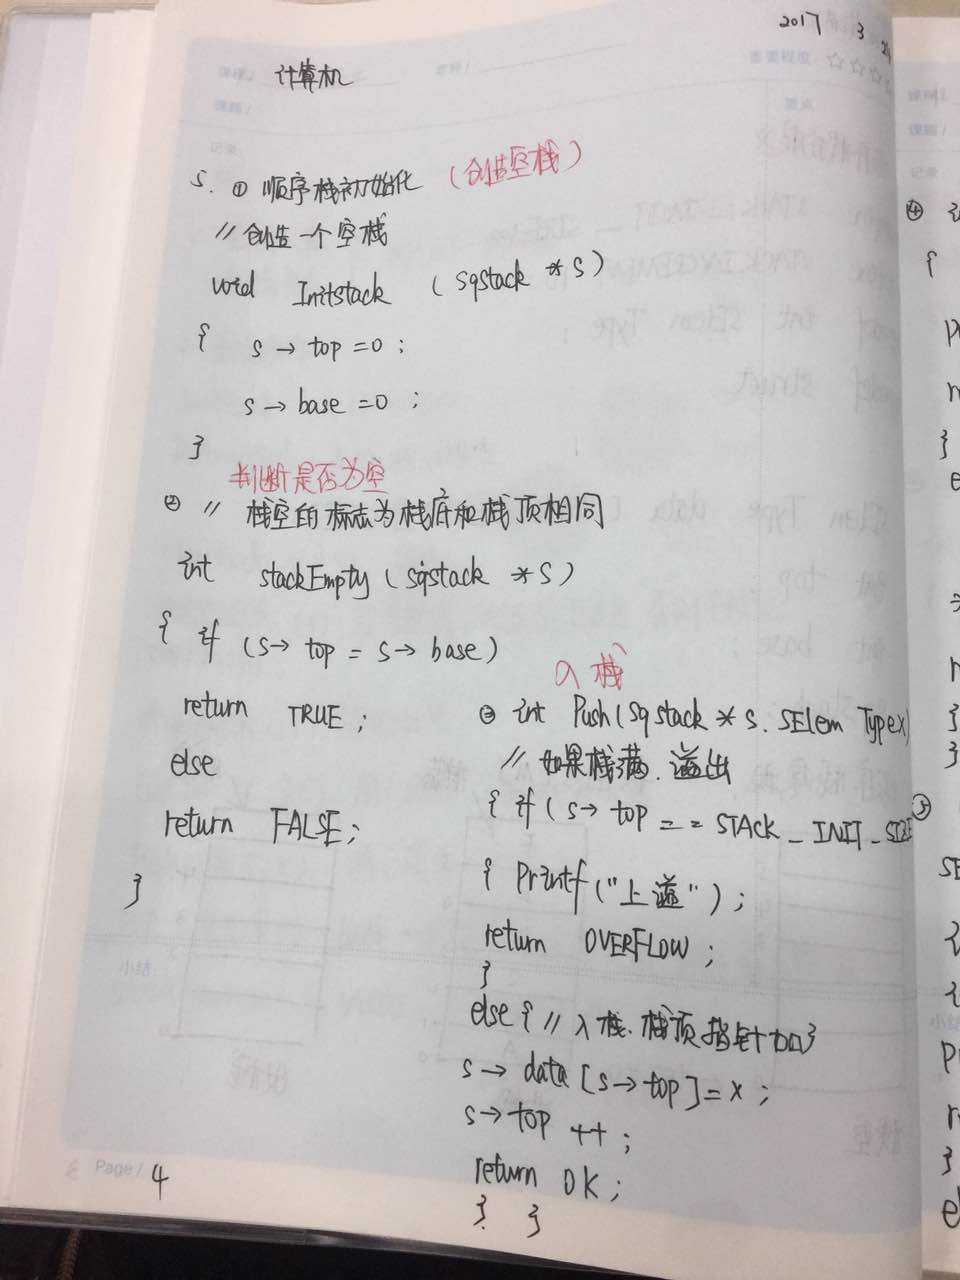 2017 3
计算机
课题/
重要程度 ☆☆☆☆
重点
记录
5. ① 顺序栈初始化 (创造空栈)
// 创造一个空栈
void Initstack (sqstack *S)
{ s → top =0 ;
s → base =0 ;
}
判断是否为空
② // 栈空的标志为栈底和栈顶相同
int stackEmpty (sqstack *S)
{ if (s→ top = s→ base)
return TRUE ;
else
return FALSE ;
}
入栈
③ int Push(sqstack * s. SElem Type x)
// 如果栈满.溢出
{ if ( s→ top == STACK_INIT_SIZE
{ Printf ("上溢") ;
return OVERFLOW ;
}
else { // 入栈.栈顶指针加1}
s → data [s→top]=x ;
s→top ++ ;
return OK ;
} }
小结
Page / 4
课题 /
记录
④
{
}
}
}
⑤
SE
{
{
小结
}